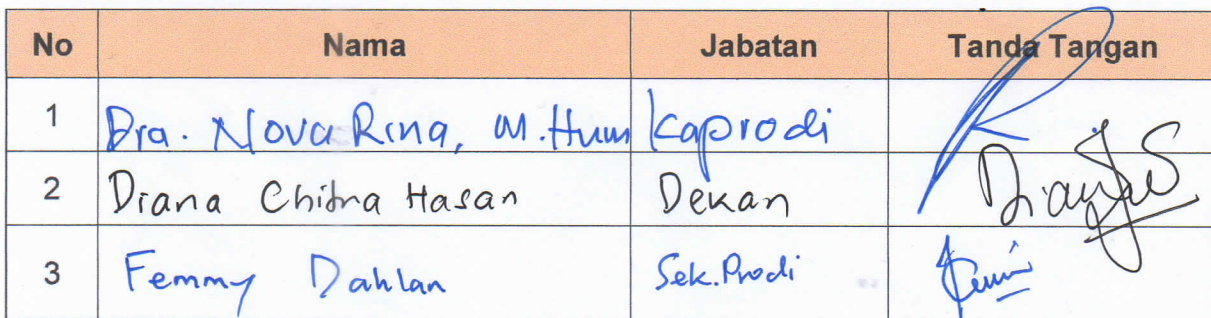 No Nama Jabatan Tanda Tangan
1 Dra. Nova Rina, M.Hum Kaprodi
2 Diana Chitra Hasan Dekan
3 Femmy Dahlan Sek.Prodi